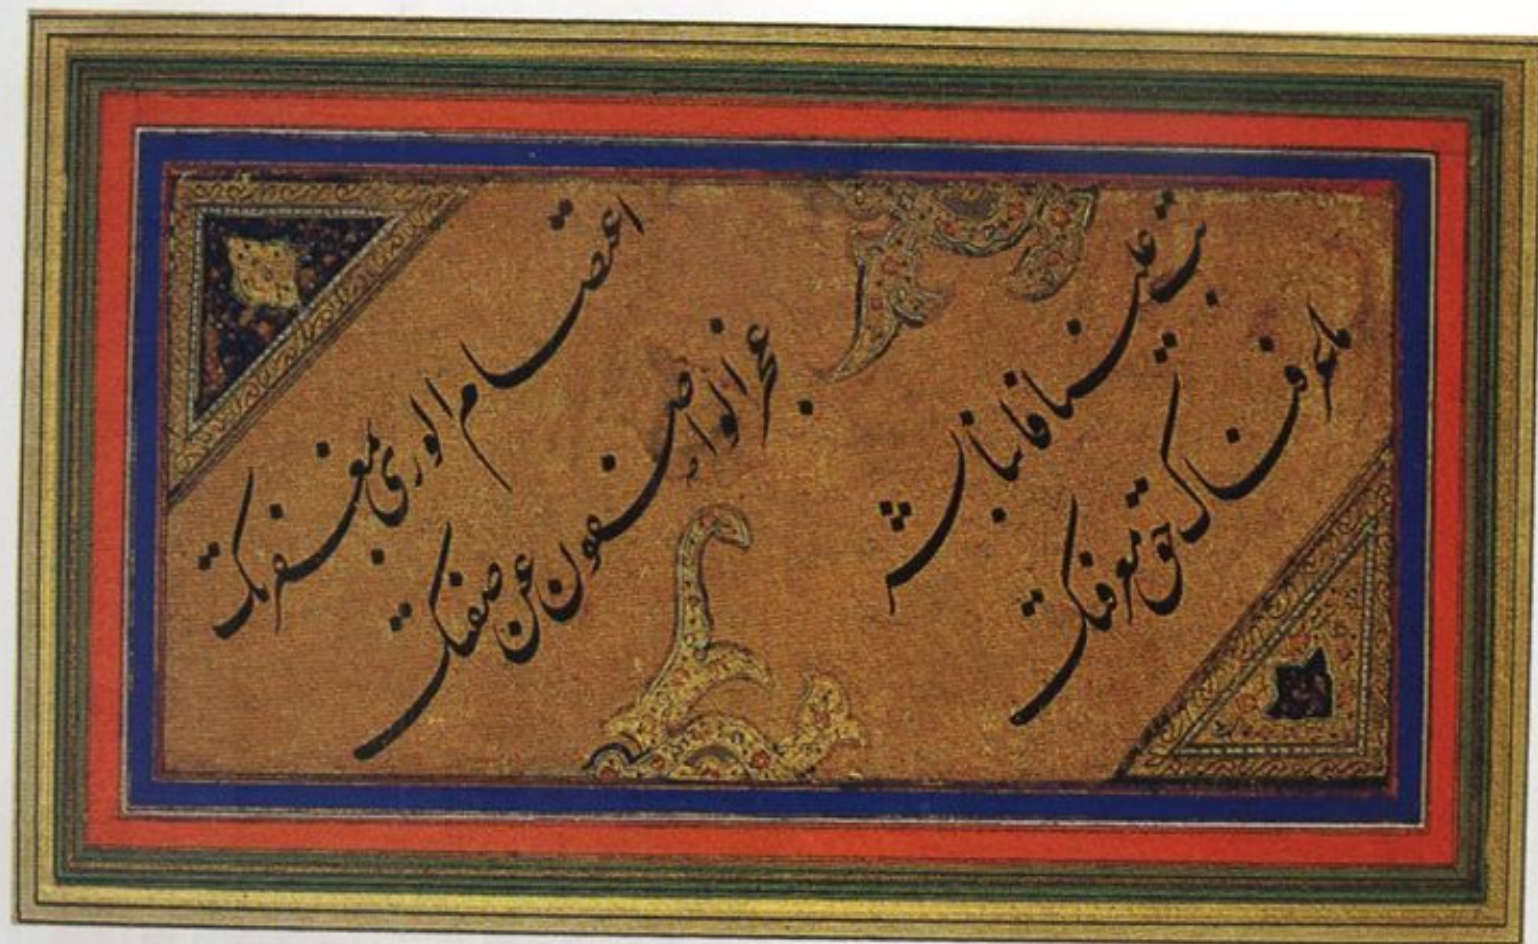 اعتصام الورى بمغفرتك
عجز الواصفون عن صفتك
تب علينا فاننا بشر
ما عرفناك حق معرفتك